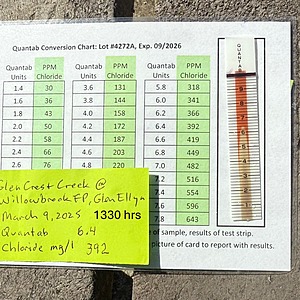 Quantab Conversion Chart: Lot #4272A, Exp. 09/2026
Quantab Units PPM Chloride Quantab Units PPM Chloride Quantab Units PPM Chloride
1.4 30 3.6 131 5.8 318
1.6 36 3.8 144 6.0 341
1.8 43 4.0 158 6.2 366
2.0 50 4.2 172 6.4 392
2.2 58 4.4 187 6.6 419
2.4 66 4.6 203 6.8 450
2.6 76 4.8 220 7.0 482
7.2 516
7.4 554
7.8 643
of sample, results of test strip.
picture of card to report with results.
Glen Crest Creek @
Willowbrook FP, Glen Ellyn
March 9, 2025 1330 hrs
Quantab 6.4
Chloride mg/l 392
QUANTAB
9
8
7
6
5
4
3
2
1